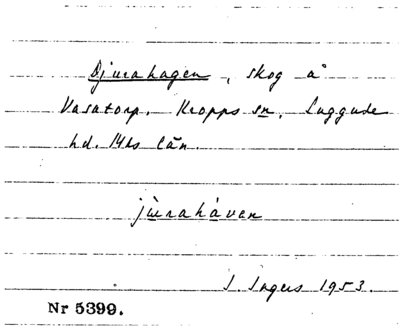 Djurahagen, skog å
Vasatorp. Kropps sn, Luggude
hd. Mhs län.
jùrahàven
I. Ingers 1953.
Nr 5399.